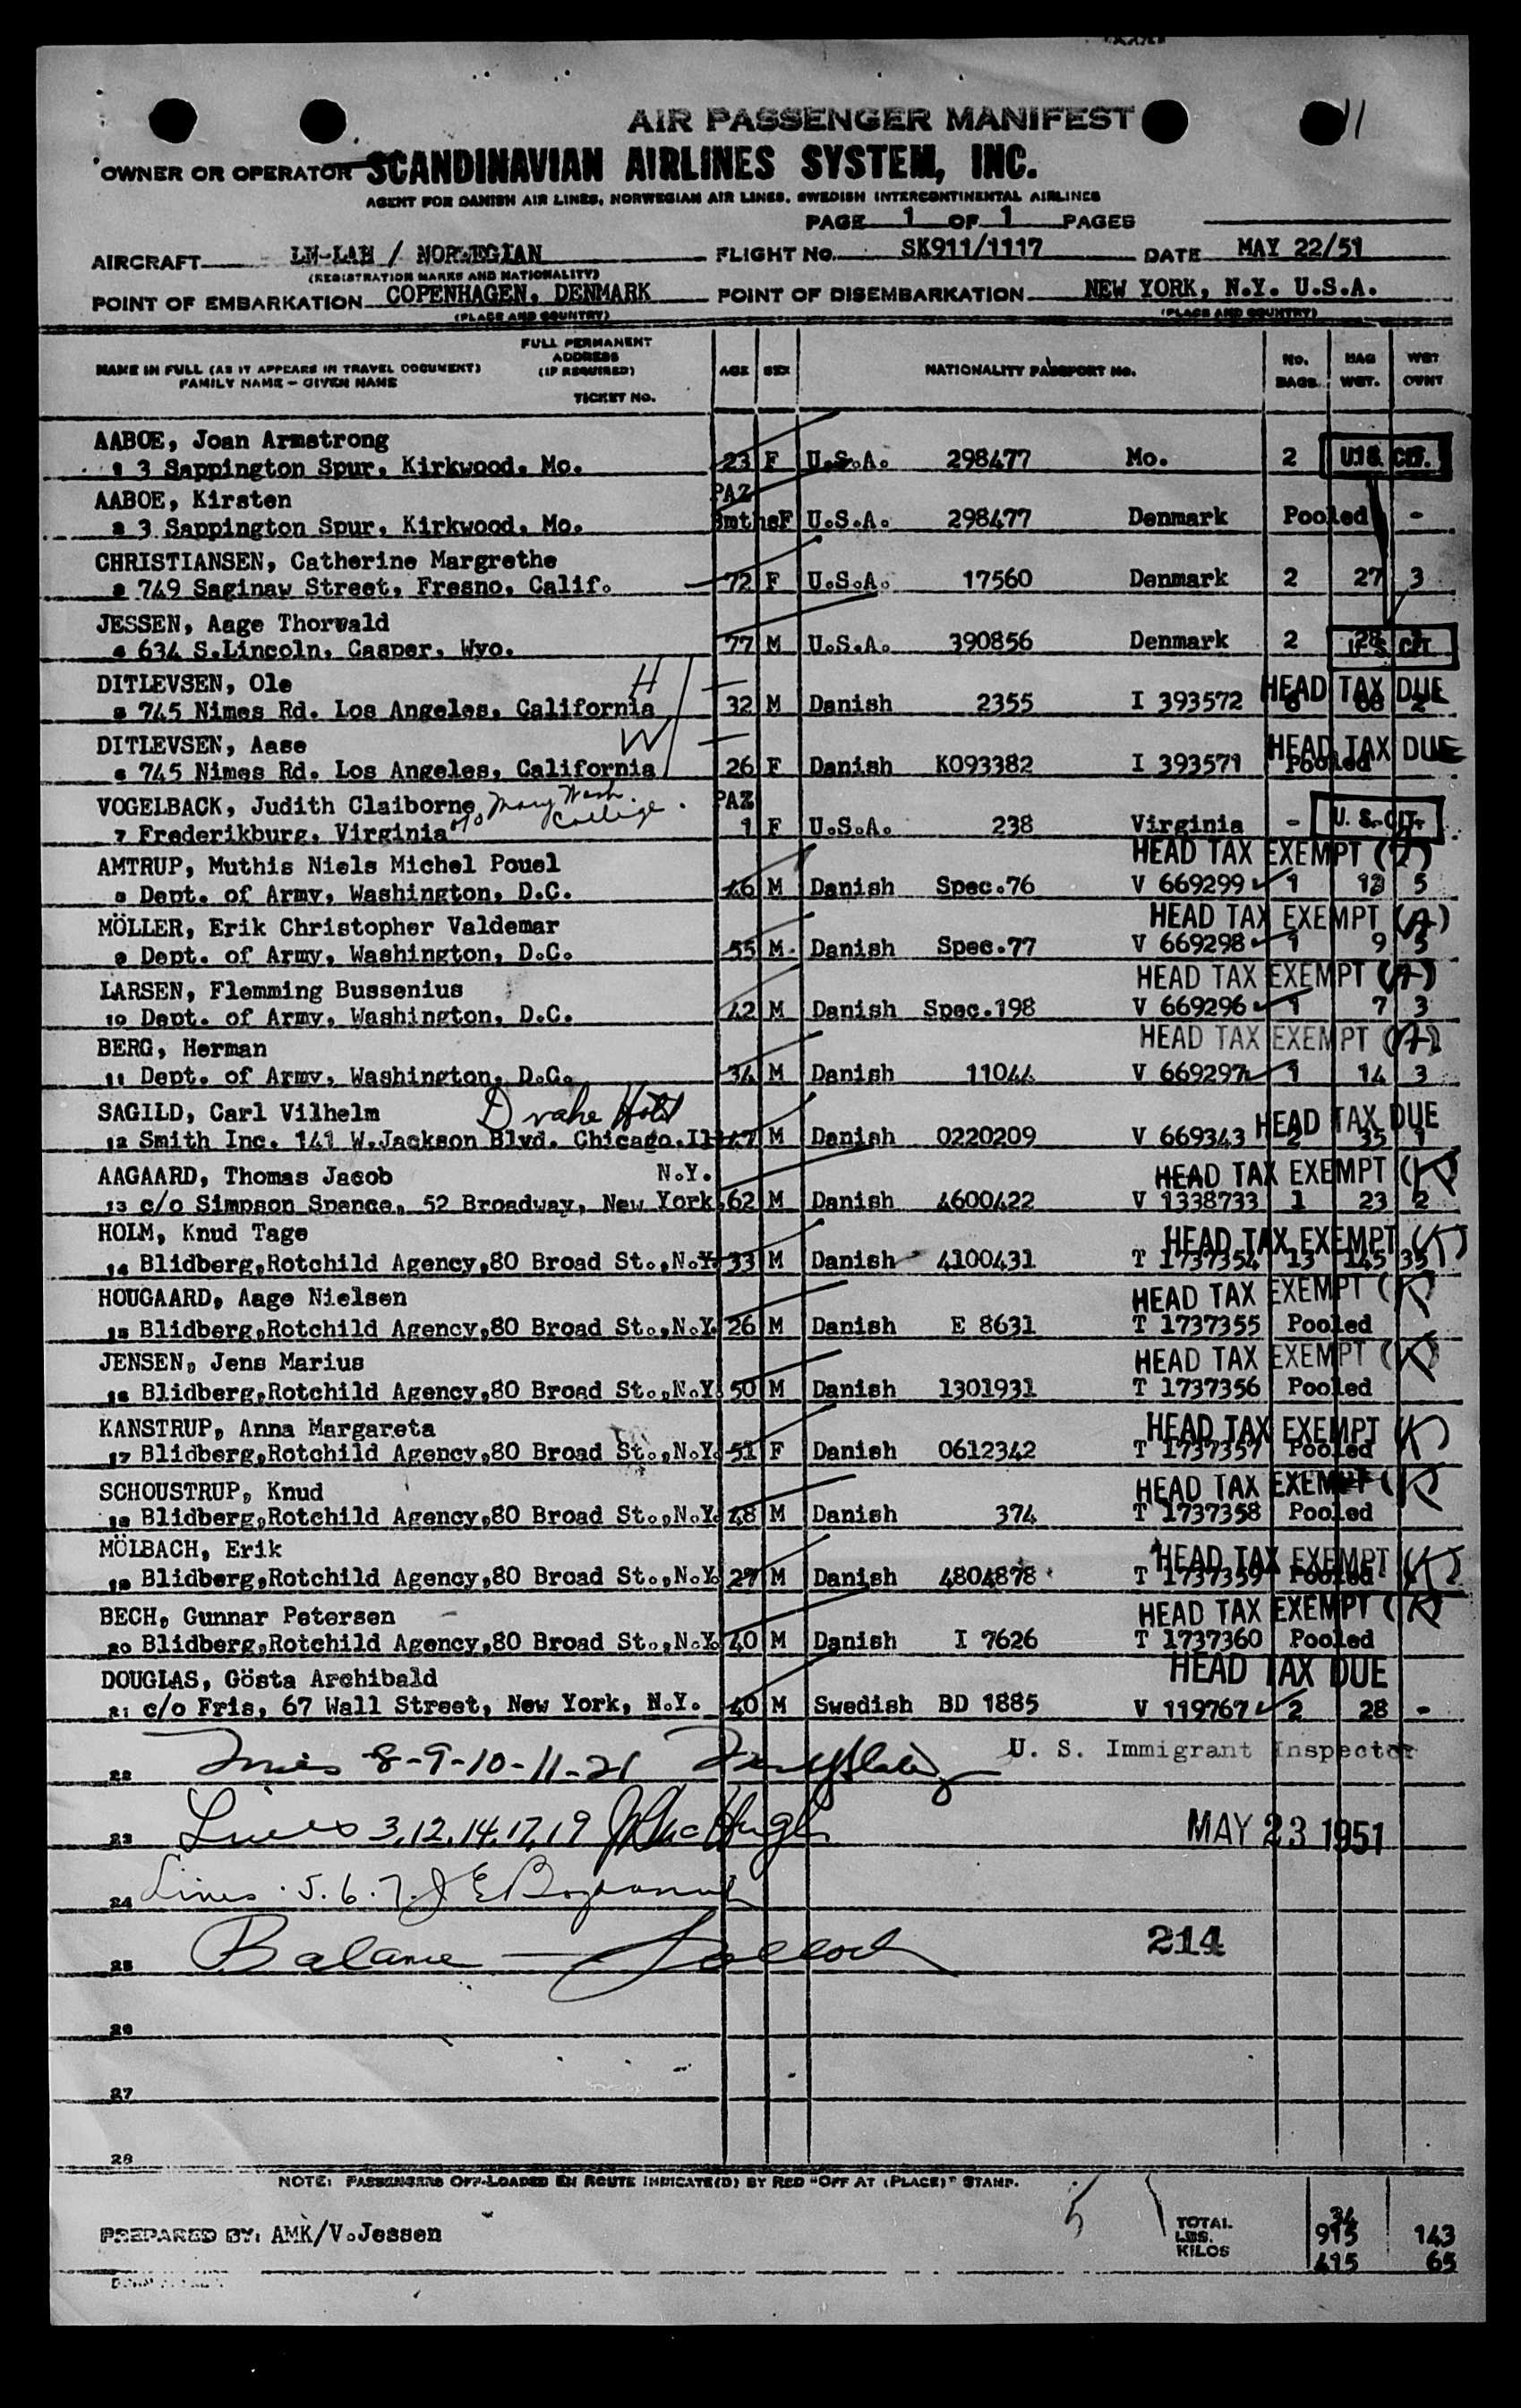 11
AIR PASSENGER MANIFEST
OWNER OR OPERATOR SCANDINAVIAN AIRLINES SYSTEM, INC.
AGENT FOR DANISH AIR LINES, NORWEGIAN AIR LINES, SWEDISH INTERCONTINENTAL AIRLINES
PAGE 1 OF 1 PAGES
AIRCRAFT LN-LAH / NORWEGIAN FLIGHT NO. SK911/1117 DATE MAY 22/51
(REGISTRATION MARKS AND NATIONALITY)
POINT OF EMBARKATION COPENHAGEN, DENMARK POINT OF DISEMBARKATION NEW YORK, N.Y. U.S.A.
(PLACE AND COUNTRY) (PLACE AND COUNTRY)
NAME IN FULL (AS IT APPEARS IN TRAVEL DOCUMENT) FAMILY NAME - GIVEN NAME FULL PERMANENT ADDRESS (IF REQUIRED) TICKET NO. AGE SEX NATIONALITY PASSPORT NO. No. BAGS BAG WGT. WGT OVWT
AABOE, Joan Armstrong
1 3 Sappington Spur, Kirkwood, Mo. 23 F U.S.A. 298477 Mo. 2 U.S. CIT.
AABOE, Kirsten PAZ
2 3 Sappington Spur, Kirkwood, Mo. 8mths F U.S.A. 298477 Denmark Pooled -
CHRISTIANSEN, Catherine Margrethe
3 749 Saginaw Street, Fresno, Calif. 72 F U.S.A. 17560 Denmark 2 27 3
JESSEN, Aage Thorvald
4 634 S.Lincoln, Casper, Wyo. 77 M U.S.A. 390856 Denmark 2 28 U.S. CIT.
DITLEVSEN, Ole H HEAD TAX DUE
5 745 Nimes Rd. Los Angeles, California 32 M Danish 2355 I 393572 6 68 2
DITLEVSEN, Aase W HEAD TAX DUE
6 745 Nimes Rd. Los Angeles, California 26 F Danish K093382 I 393571 Pooled
VOGELBACK, Judith Claiborne c/o Mary Wash. College PAZ
7 Frederikburg, Virginia 1 F U.S.A. 238 Virginia - U. S. CIT.
AMTRUP, Muthis Niels Michel Pouel HEAD TAX EXEMPT (A)
8 Dept. of Army, Washington, D.C. 46 M Danish Spec.76 V 669299 1 13 5
MÖLLER, Erik Christopher Valdemar HEAD TAX EXEMPT (A)
9 Dept. of Army, Washington, D.C. 55 M Danish Spec.77 V 669298 1 9 5
LARSEN, Flemming Bussenius HEAD TAX EXEMPT (A)
10 Dept. of Army, Washington, D.C. 42 M Danish Spec.198 V 669296 1 7 3
BERG, Herman HEAD TAX EXEMPT (A)
11 Dept. of Army, Washington, D.C. 34 M Danish 11044 V 669297 1 14 3
SAGILD, Carl Vilhelm Drake Hotel HEAD TAX DUE
12 Smith Inc. 141 W.Jackson Blvd. Chicago.Il 47 M Danish 0220209 V 669343 2 35 1
AAGAARD, Thomas Jacob N.Y. HEAD TAX EXEMPT (K)
13 c/o Simpson Spence, 52 Broadway, New York, 62 M Danish 4600422 V 1338733 1 23 2
HOLM, Knud Tage HEAD TAX EXEMPT (K)
14 Blidberg,Rotchild Agency,80 Broad St.,N.Y. 33 M Danish 4100431 T 1737354 13 145 35
HOUGAARD, Aage Nielsen HEAD TAX EXEMPT (K)
15 Blidberg,Rotchild Agency,80 Broad St.,N.Y. 26 M Danish E 8631 T 1737355 Pooled
JENSEN, Jens Marius HEAD TAX EXEMPT (K)
16 Blidberg,Rotchild Agency,80 Broad St.,N.Y. 50 M Danish 1301931 T 1737356 Pooled
KANSTRUP, Anna Margareta HEAD TAX EXEMPT (K)
17 Blidberg,Rotchild Agency,80 Broad St.,N.Y. 51 F Danish 0612342 T 1737357 Pooled
SCHOUSTRUP, Knud HEAD TAX EXEMPT (K)
18 Blidberg,Rotchild Agency,80 Broad St.,N.Y. 48 M Danish 374 T 1737358 Pooled
MÖLBACH, Erik HEAD TAX EXEMPT (K)
19 Blidberg,Rotchild Agency,80 Broad St.,N.Y. 27 M Danish 4804878 T 1737359 Pooled
BECH, Gunnar Petersen HEAD TAX EXEMPT (K)
20 Blidberg,Rotchild Agency,80 Broad St.,N.Y. 40 M Danish I 7626 T 1737360 Pooled
DOUGLAS, Gösta Archibald HEAD TAX DUE
21 c/o Fris, 67 Wall Street, New York, N.Y. 40 M Swedish BD 1885 V 119767 2 28 -
22 Lines 8-9-10-11-21 U. S. Immigrant Inspector
23 Lines 3,12,14,17,19 MAY 23 1951
24 Lines 5.6.7.
25 Balance 214
26
27
28
NOTE: PASSENGERS OFF-LOADED EN ROUTE INDICATE(D) BY RED "OFF AT (PLACE)" STAMP.
5
PREPARED BY: AMK/V.Jessen TOTAL 34
LBS. 915 143
KILOS 415 65